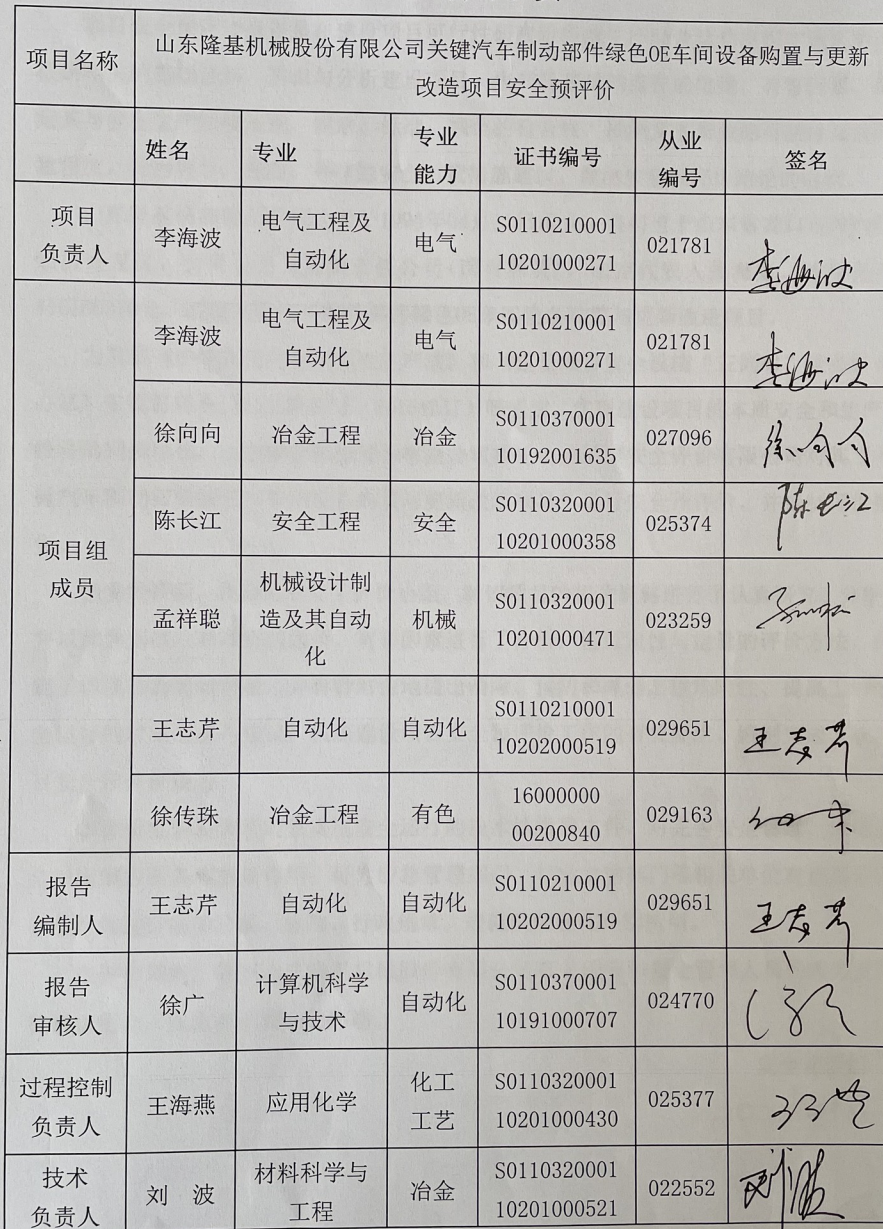 项目名称
山东隆基机械股份有限公司关键汽车制动部件绿色OE车间设备购置与更新
改造项目安全预评价
姓名
专业
专业
能力
证书编号
从业
编号
签名
项目
负责人
李海波
电气工程及
自动化
电气
S0110210001
10201000271
021781
李海波
项目组
成员
李海波
电气工程及
自动化
电气
S0110210001
10201000271
021781
李海波
徐向向
冶金工程
冶金
S0110370001
10192001635
027096
徐向向
陈长江
安全工程
安全
S0110320001
10201000358
025374
陈长江
孟祥聪
机械设计制
造及其自动
化
机械
S0110320001
10201000471
023259
王志芹
自动化
自动化
S0110210001
10202000519
029651
王志芹
徐传珠
冶金工程
有色
16000000
00200840
029163
报告
编制人
王志芹
自动化
自动化
S0110210001
10202000519
029651
王志芹
报告
审核人
徐广
计算机科学
与技术
自动化
S0110370001
10191000707
024770
过程控制
负责人
王海燕
应用化学
化工
工艺
S0110320001
10201000430
025377
技术
负责人
刘 波
材料科学与
工程
冶金
S0110320001
10201000521
022552
刘波